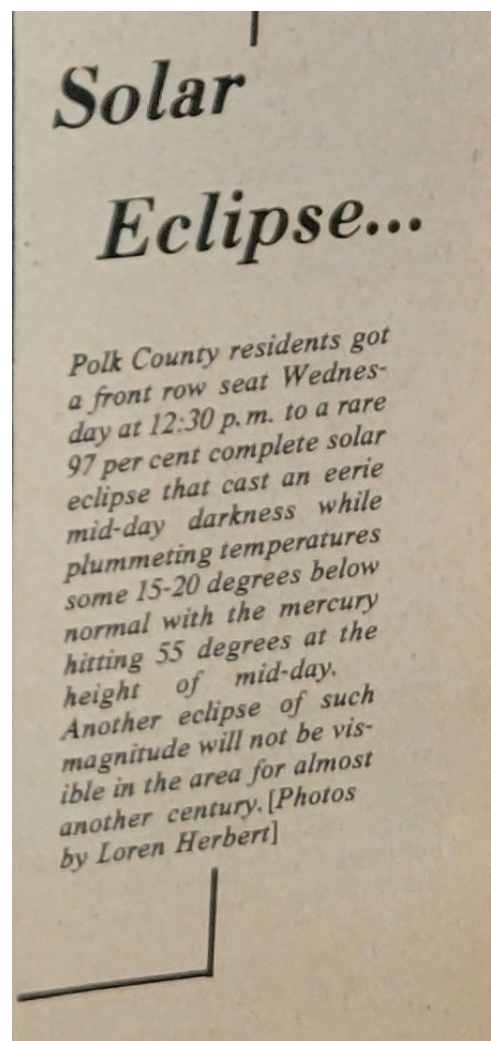 Solar
Eclipse...
Polk County residents got
a front row seat Wednes-
day at 12:30 p.m. to a rare
97 per cent complete solar
eclipse that cast an eerie
mid-day darkness while
plummeting temperatures
some 15-20 degrees below
normal with the mercury
hitting 55 degrees at the
height of mid-day.
Another eclipse of such
magnitude will not be vis-
ible in the area for almost
another century. [Photos
by Loren Herbert]